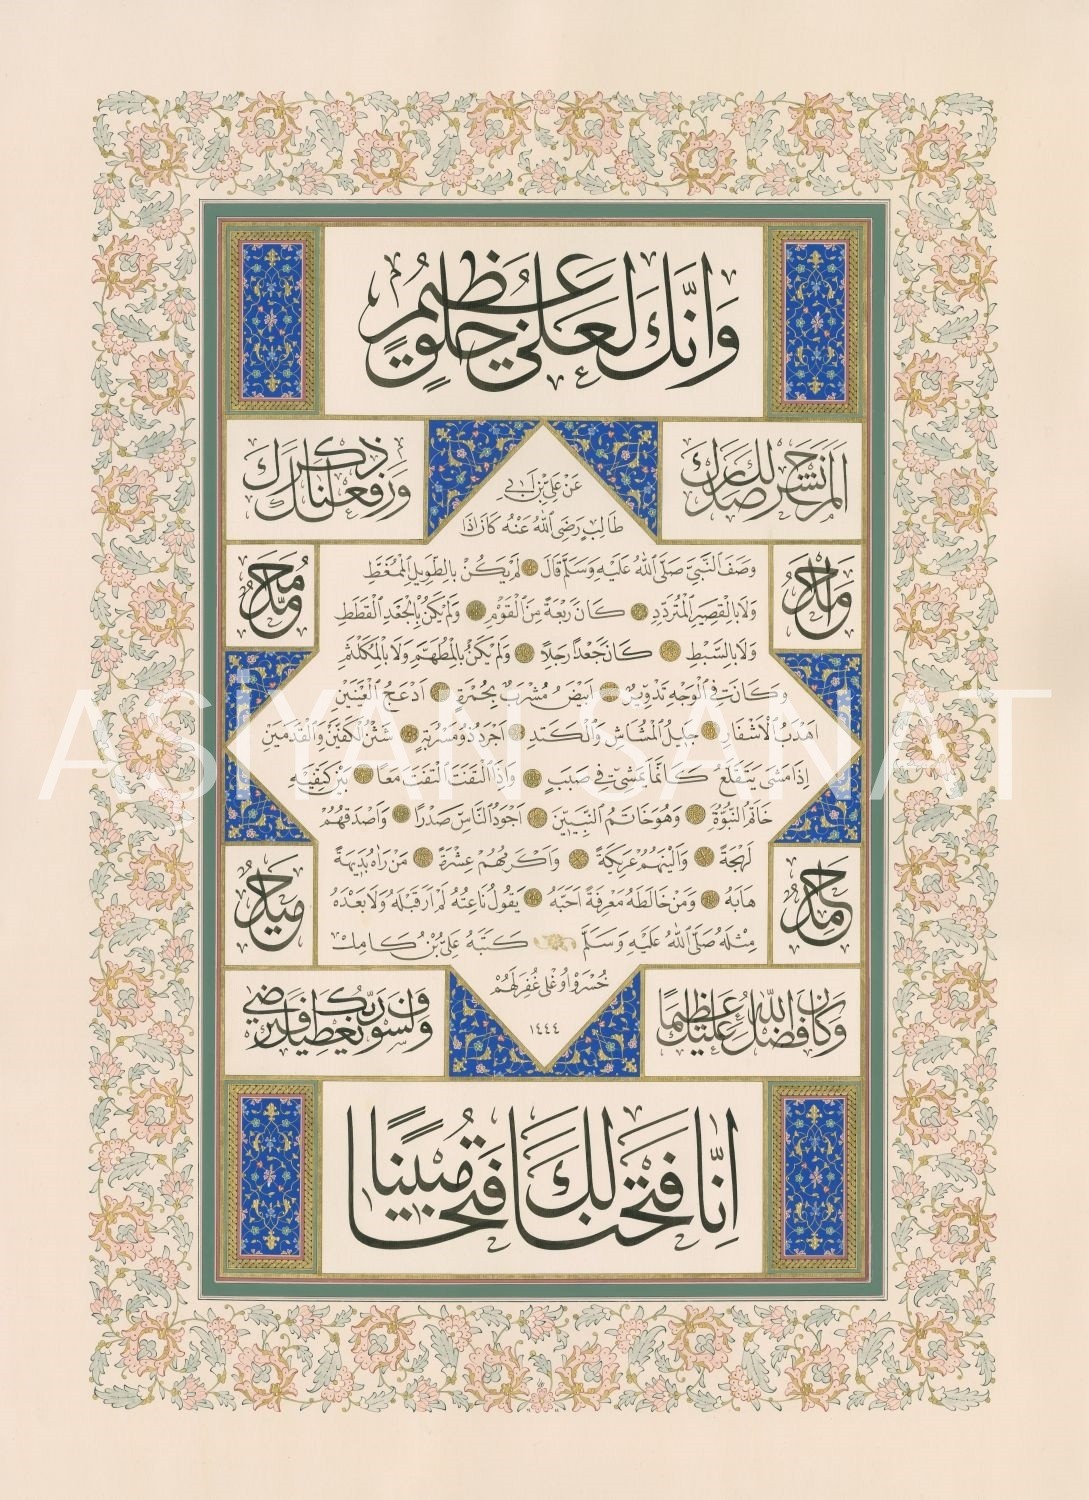 وَاِنَّكَ لَعَلٰى خُلُقٍ عَظِيمٍ
اَلَمْ نَشْرَحْ لَكَ صَدْرَكَ
وَرَفَعْنَا لَكَ ذِكْرَكَ
عَنْ عَلِيِّ بْنِ اَبِي
طَالِبٍ رَضِيَ اللهُ عَنْهُ كَانَ اِذَا
وَصَفَ النَّبِيَّ صَلَّى اللهُ عَلَيْهِ وَسَلَّمَ قَالَ لَمْ يَكُنْ بِالطَّوِيلِ الْمُمَّغِطِ
وَلَا بِالْقَصِيرِ الْمُتَرَدِّدِ كَانَ رَبْعَةً مِنَ الْقَوْمِ وَلَمْ يَكُنْ بِالْجَعْدِ الْقَطَطِ
وَلَا بِالسَّبْطِ كَانَ جَعْدًا رَجِلًا وَلَمْ يَكُنْ بِالْمُطَهَّمِ وَلَا بِالْمُكَلْثَمِ
وَكَانَ فِي الْوَجْهِ تَدْوِيرٌ اَبْيَضُ مُشْرَبٌ بِحُمْرَةٍ اَدْعَجُ الْعَيْنَيْنِ
اَهْدَبُ الْاَشْفَارِ جَلِيلُ الْمُشَاشِ وَالْكَتَدِ اَجْرَدُ ذُو مَسْرُبَةٍ شَثْنُ الْكَفَّيْنِ وَالْقَدَمَيْنِ
اِذَا مَشَى يَتَقَلَّعُ كَاَنَّمَا يَمْشِي فِي صَبَبٍ وَاِذَا الْتَفَتَ الْتَفَتَ مَعًا بَيْنَ كَتِفَيْهِ
خَاتَمُ النُّبُوَّةِ وَهُوَ خَاتَمُ النَّبِيِّينَ اَجْوَدُ النَّاسِ صَدْرًا وَاَصْدَقُهُمْ
لَهْجَةً وَاَلْيَنُهُمْ عَرِيكَةً وَاَكْرَمُهُمْ عِشْرَةً مَنْ رَاٰهُ بَدِيهَةً
هَابَهُ وَمَنْ خَالَطَهُ مَعْرِفَةً اَحَبَّهُ يَقُولُ نَاعِتُهُ لَمْ اَرَ قَبْلَهُ وَلَا بَعْدَهُ
مِثْلَهُ صَلَّى اللهُ عَلَيْهِ وَسَلَّمَ كَتَبَهُ عَلِيُّ بْنُ كَامِل
خُسْرَوْ اُوغْلِي غُفِرَ لَهُمْ
١٤٤٤
وَاَحْمَدُ
وَمُحَمَّدٌ
حَامِدٌ
حَمِيدٌ
وَكَانَ فَضْلُ اللهِ عَلَيْكَ عَظِيمًا
وَلَسَوْفَ يُعْطِيكَ رَبُّكَ فَتَرْضٰى
اِنَّا فَتَحْنَا لَكَ فَتْحًا مُبِينًا
AŞİYAN SANAT